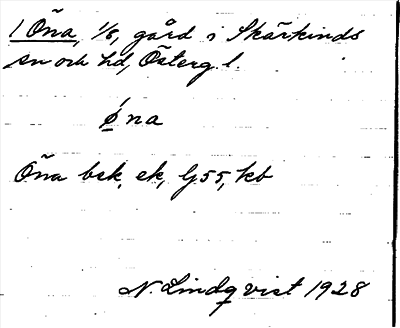 1 Öna, 1/8, gård i Skärkinds
sn och hd, Österg. l.
ǿna
Öna bsk, ek, G55, kb
N. Lindqvist 1928